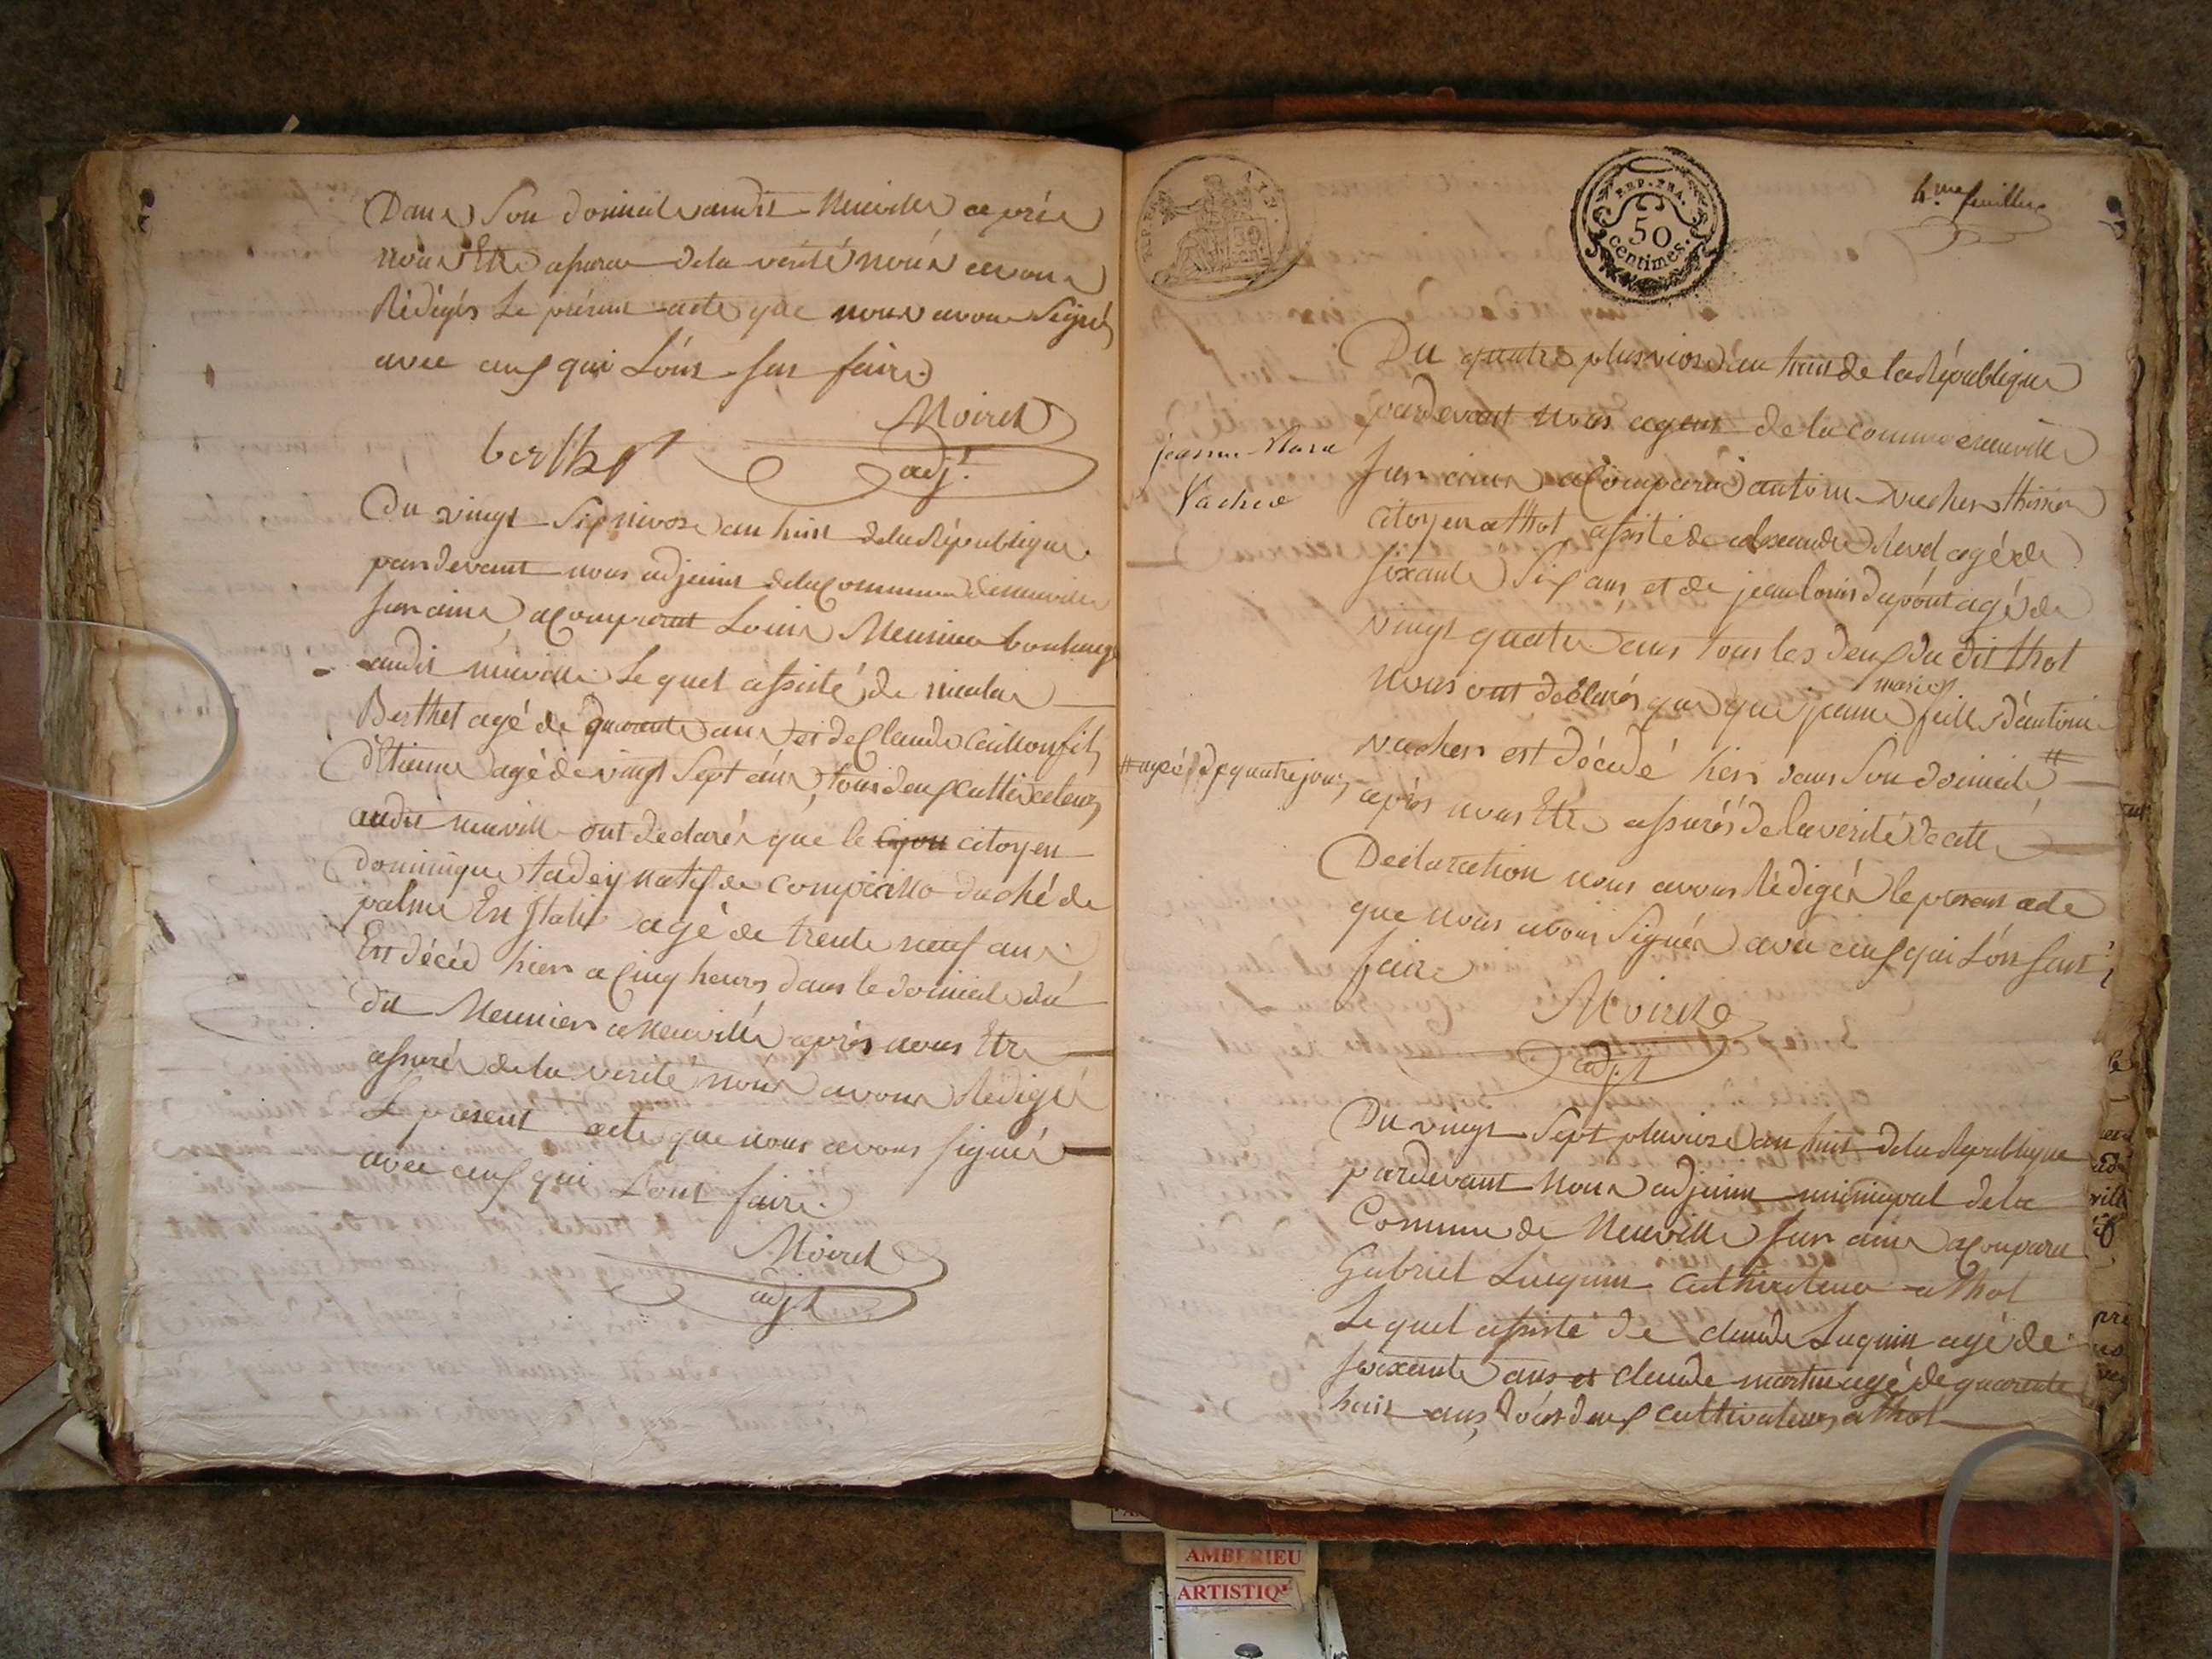 Dans Son domicile audit Neuville après
nous Etre assuré de la vérité nous avons
Rédigés Le présent acte que nous avons Signés
avec ceux qui L'ons sus faire
Moiret
berthet adj.t
Du vingt Six nivose an huit de la République
pardevant nous adjoint de la Commune de neuville
sur ains a Comparut Louis Meunier boulanger
audit neuville Le quel assisté de nicolas
Berthet agé de quarante ans et de Claude Caillon fils
d'Etienne agé de vingt Sept ans, tous deux Cultivateurs
audit neuville ont declarés que le citoyen
dominique tadey natif de Compiano duché de
palme En Italie agé de trente neuf ans
Est décéd hiers a Cinq heures dans le domicile du
dit Meuniers a Neuville après nous Etre
assurés de la verité nous avons Rédigé
Le present acte que nous avons signé
avec ceux qui L'ont faire.
Moiret
adj.t
REP. FRA.
50 cent
REP. FRA.
50
centimes.
4.me feuillet
Du quatre pluviose an huit de la République
pardevant nous agent de la commune neuville
jeanne Marie
Vacher
sur ains a Comparu antoine vachers
citoyen a thol assisté de alexandre Revel agé de
soixante Six ans, et de jean louis dupont agé de
vingt quatre ans tous les deux du dit thol
marie
nous ont declarés que que jeanne fille d'antoine
vachers est décédé hiers dans Son domicile #
# agée de quatre jours
après nous Etre assurés de la verité de cette
Declaration nous avons Rédigés le présent acte
que nous avons Signés avec ceux qui L'on sus
faire
Moiret
adj.t
Du vingt Sept pluviose an huit de la République
pardevant Nous adjoint municipal de la
Commune de Neuville sur ains a Comparu
Gabriel Luquin Cultivateur a thol
Le quel assisté de claude Luquin agé de
soixante ans et claude martin agé de quarante
huit ans, tous deux Cultivateurs a thol
AMBERIEU
ARTISTIQUE